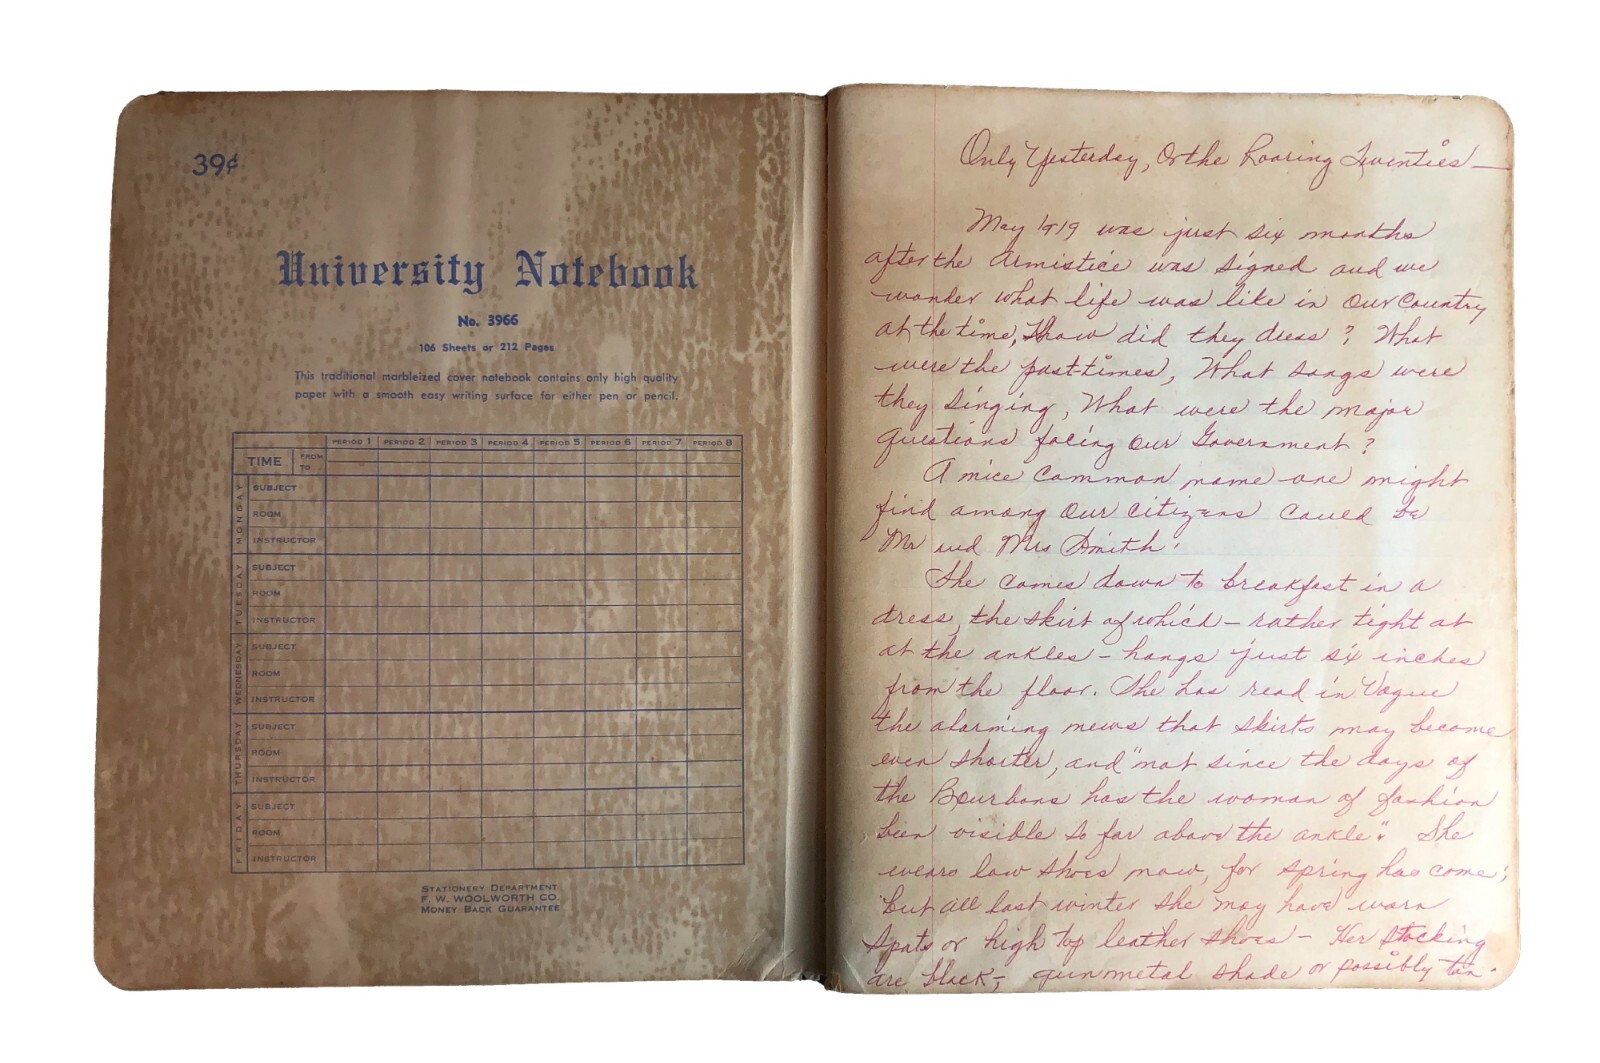 39¢
University Notebook
No. 3966
106 Sheets or 212 Pages
This traditional marbleized cover notebook contains only high quality
paper with a smooth easy writing surface for either pen or pencil.
PERIOD 1 PERIOD 2 PERIOD 3 PERIOD 4 PERIOD 5 PERIOD 6 PERIOD 7 PERIOD 8
TIME FROM
TO
MONDAY
SUBJECT
ROOM
INSTRUCTOR
TUESDAY
SUBJECT
ROOM
INSTRUCTOR
WEDNESDAY
SUBJECT
ROOM
INSTRUCTOR
THURSDAY
SUBJECT
ROOM
INSTRUCTOR
FRIDAY
SUBJECT
ROOM
INSTRUCTOR
STATIONERY DEPARTMENT
F. W. WOOLWORTH CO.
MONEY BACK GUARANTEE
Only Yesterday, Or the Roaring Twenties —
May 1919 was just six months
after the Armistice was signed and we
wonder what life was like in Our Country
at the time, How did they dress? What
were the past-times, What songs were
they singing, What were the major
questions facing Our Government?
A nice common name one might
find among our citizens could be
Mr and Mrs Smith.
She comes down to breakfast in a
dress, the skirt of which — rather tight at
at the ankles — hangs just six inches
from the floor. She has read in Vogue
the alarming news that skirts may become
even shorter, and "not since the days of
the Bourbons has the woman of fashion
been visible so far above the ankle". She
wears low shoes now, for spring has come;
but all last winter she may have worn
spats or high top leather shoes — Her stocking
are black, gunmetal shade or possibly tan.